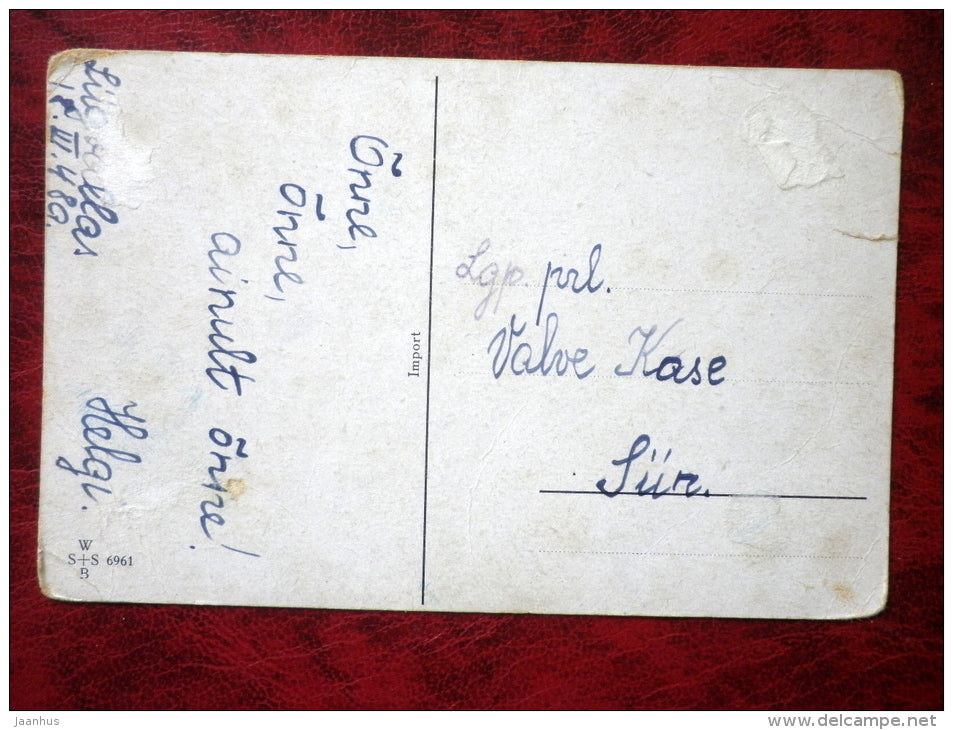 18.III.48a.
Õnne,
õnne,
ainult õnne!
Helgi.
W
S+S 6961
B
Import
Lgp. prl.
Valve Kase
Siir.
Jaanhus
www.delcampe.net